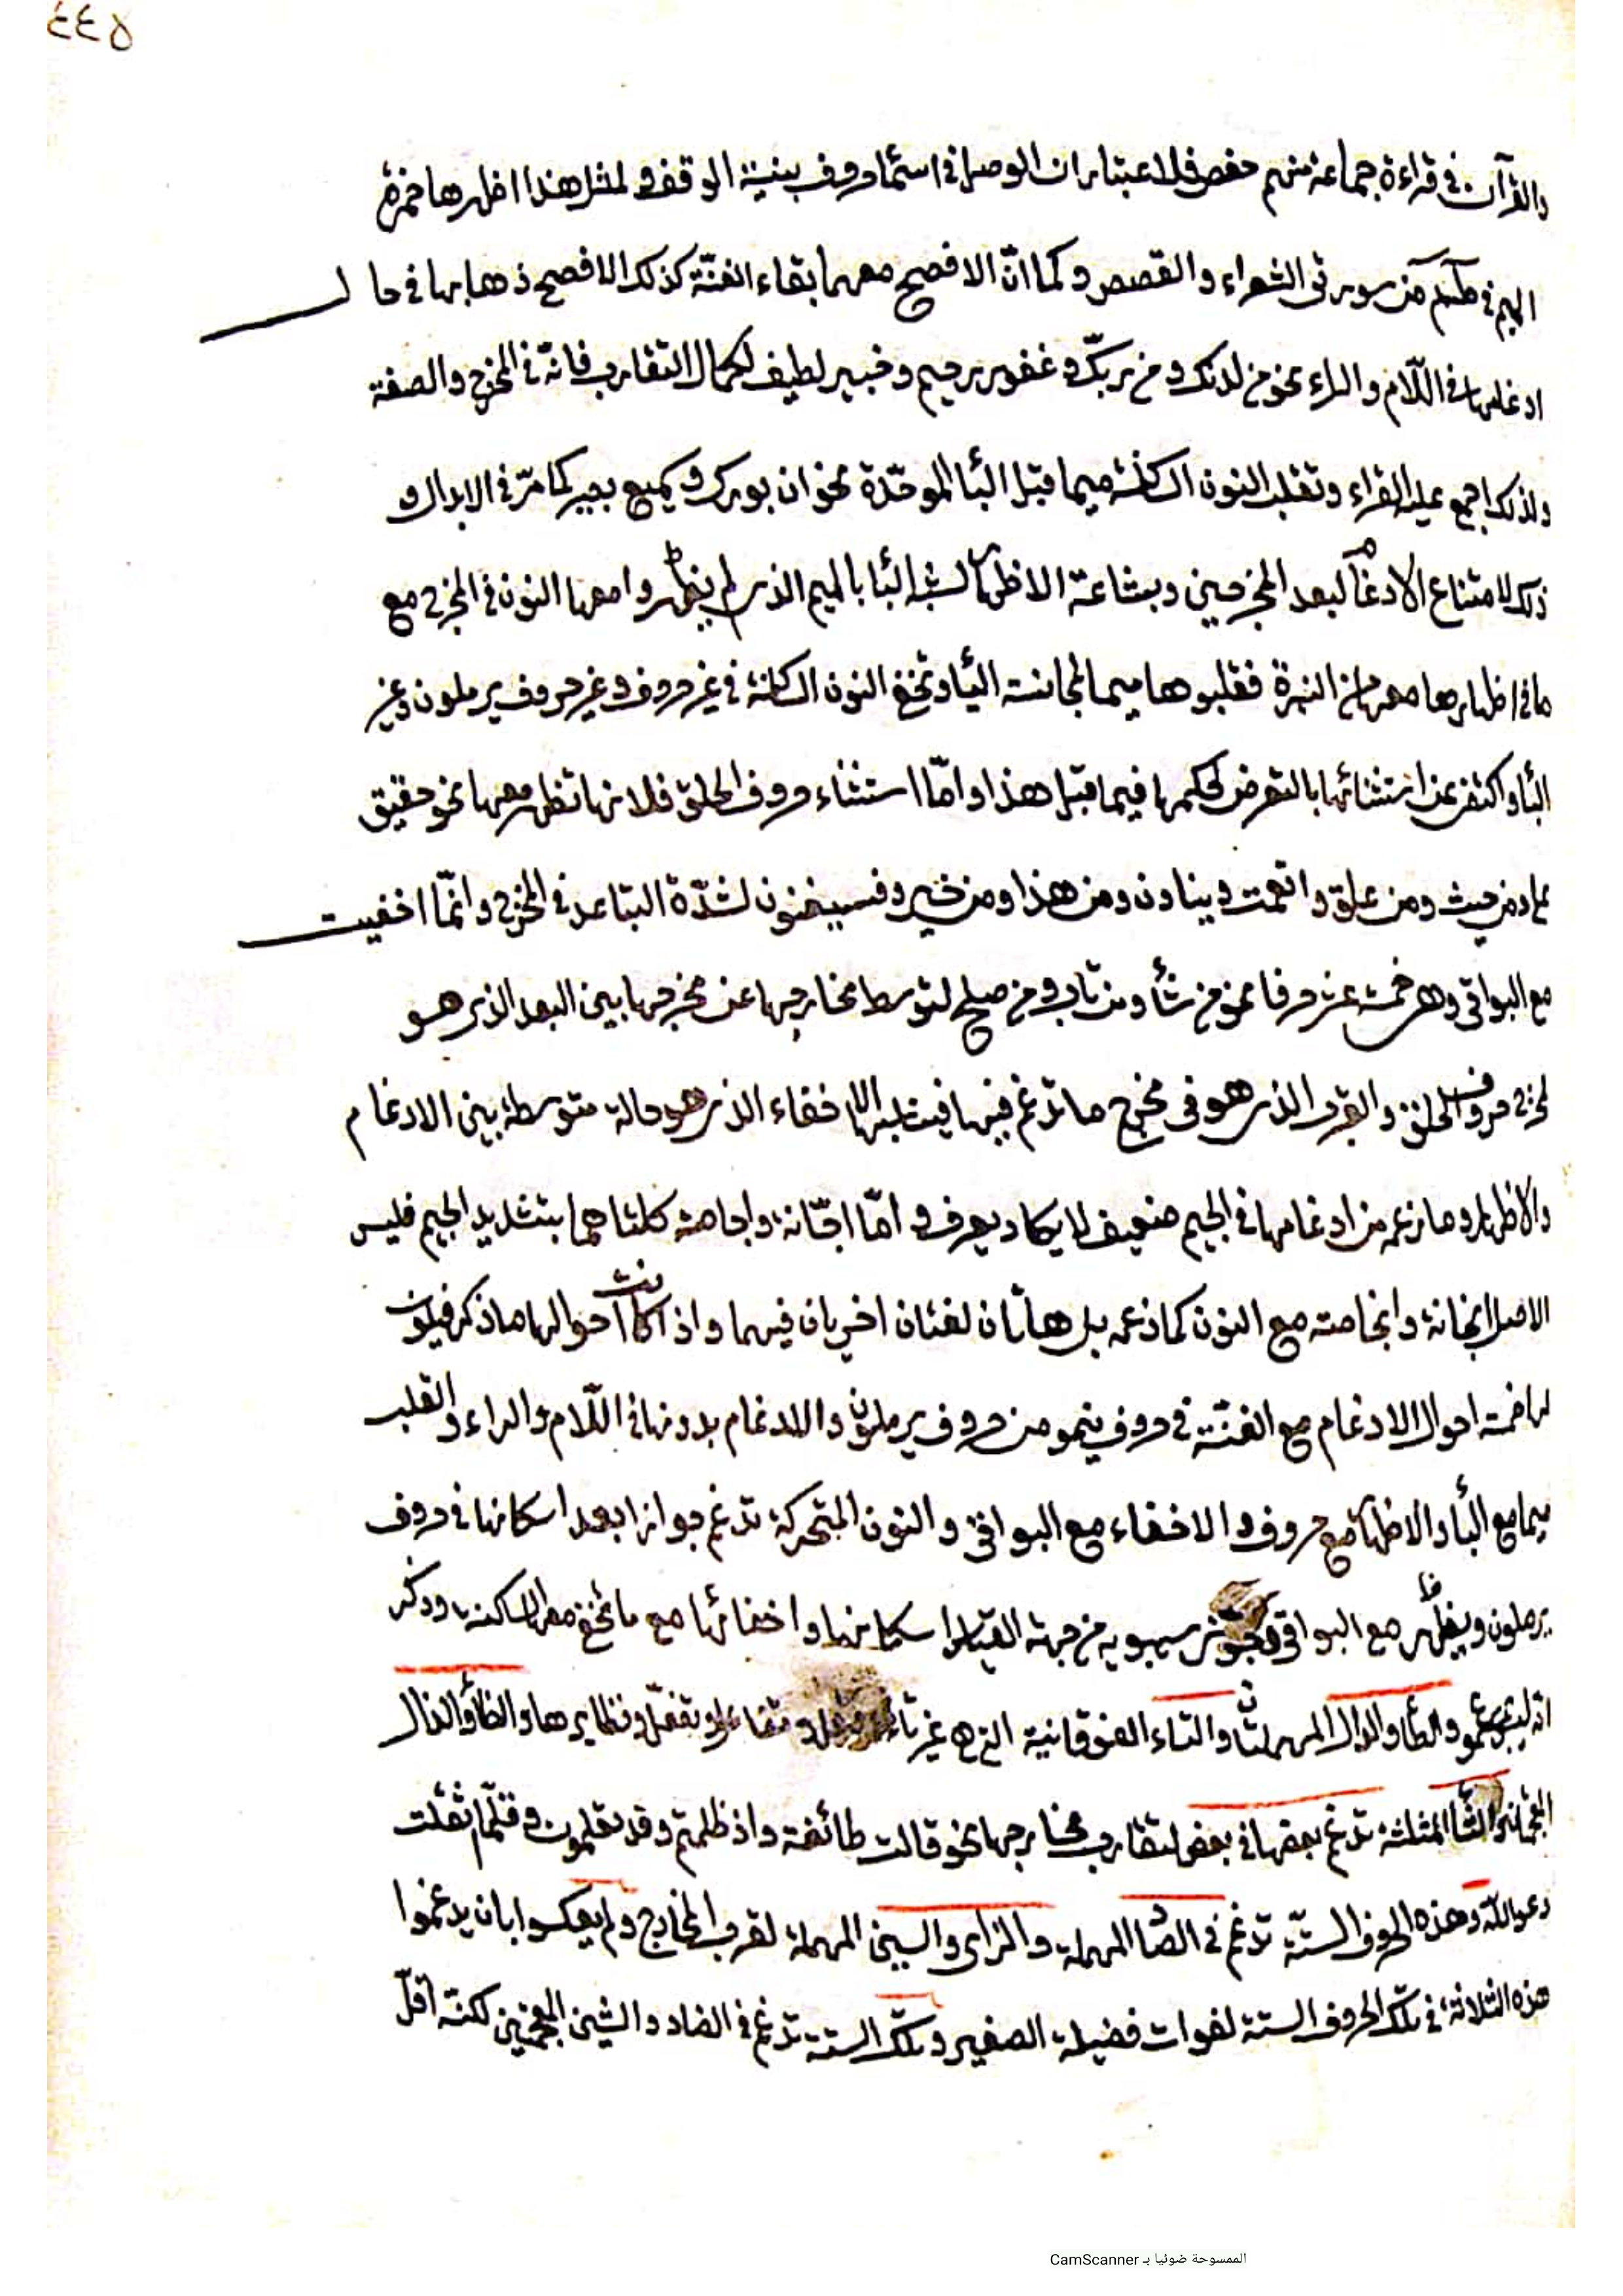 ٤٤٥
والقرآن في قراءة جماعة منهم حفص فلاعتبار ان الوصل في اسماء حروف بنية الوقف ولمثل هذا اظهرها حمزة
الميم في طسم من سورتي الشعراء والقصص وكما انّ الافصح معهما بقاء الغنّة كذلك الافصح ذهابها في حال
ادغامها في اللّام والراء نحو من لدنك ومن ربّك وغفور رحيم وخبير لطيف لكمال التقارب فانّه في المخرج والصفة
ولذلك اجمع عليه القراء وتقلب النون الساكنة ميما قبل البأ الموحّدة نحو ان بورك وسميع بصير كما مرّ في الابدال و
ذلك لامتناع الادغام لبعد المخرجين وبشاعة الاظهار لشبه البأ بالميم الذي لم يظهروا معها النون في المخرج مع
ما في اظهارها معها من النبرة فقلبوها ميما لمجانسته البأ وتخفى النون الساكنة في غير حروف وغير حروف يرملون وغير
البأ واكتفى عن استثنائها بالتعرض لحكمها فيما قبل هذا وامّا استثناء حروف الحلق فلانها تظهر معها نحو حقيق
على ومن حيث ومن علق وانعمت وينادون ومن هذا ومن خير وفسينغضون لشدّة التباعد في المخرج وانّما اخفيت
مع البواقي وهي خمسة عشر حرفا نحو من شأ ومن تاب ومن صلح لتوسط مخارجها عن مخرجها بين البعد الذي هو
لمخرج حروف الحلق والقرب الذي هو في مخرج ما تدغم فيها فيناسبها الاخفاء الذي هو حالة متوسطة بين الادغام
والاظهار وما زعم من ادغامها في الجيم ضعيف لا يكاد يعرف وامّا اجّانة واجاصة كلتاهما بتشديد الجيم فليس
الاصل انجانة وانجاصة مع النون كما زعم بل هاتان لغتان اخريان فيهما واذا كانت احوالها ما ذكر فيكون
لها خمسة احوال الادغام مع الغنّة في حروف ينمو من حروف يرملون والادغام بدونها في اللّام والراء والقلب
ميما مع البأ والاظهار مع حروف والاخفاء مع البواقي والنون المتحركة تدغم جوازا بعد اسكانها في حروف
يرملون ويظهر مع البواقي وجوّز سيبويه من جهة القياس اسكانها واخفائها مع ما تخفى معه الساكنة وذكر
انه ليس بمسموع والطأ والدال المهملتان والتاء الفوقانية التي هي غير تاء وتفاعل وتفعّل ونظايرها والظأ والذال
المعجمتان والثأ المثلثة تدغم بعضها في بعض لتقارب مخارجها نحو قالت طائفة واذ ظلمتم وقد تعلمون وقلّما ثقلت
دعوا اللّه وهذه الحروف الستّة تدغم في الصاد المهملة والزاى والسين المهملة لقرب المخارج ولم يعكسوا بان يدغموا
هذه الثلاثة في تلك الحروف الستة لفوات فضيلة الصفير وتلك الستة تدغم في الضاد والشين المعجمتين لكنّه اقلّ
الممسوحة ضوئيا بـ CamScanner